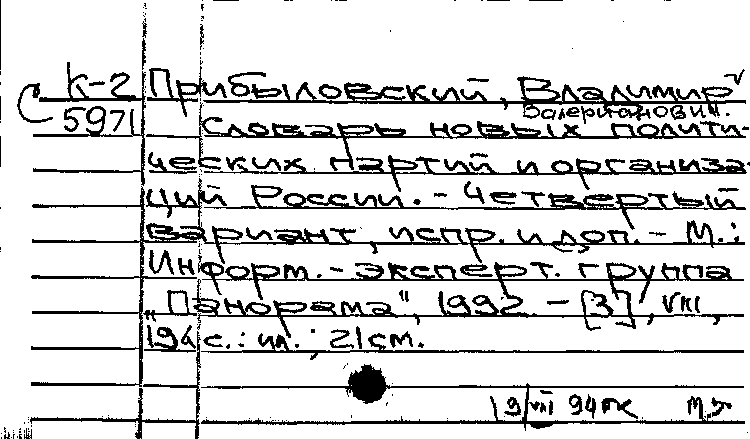 К-2 Прибыловский, Владимир
Валерианович.
5971 Словарь новых полити-
ческих партий и организа-
ций России. - Четвертый
вариант, испр. и доп. - М.:
Информ.-эксперт. группа
„Панорама", 1992. - [3], VIII,
194 с.: ил.; 21 см.
19/VII 94